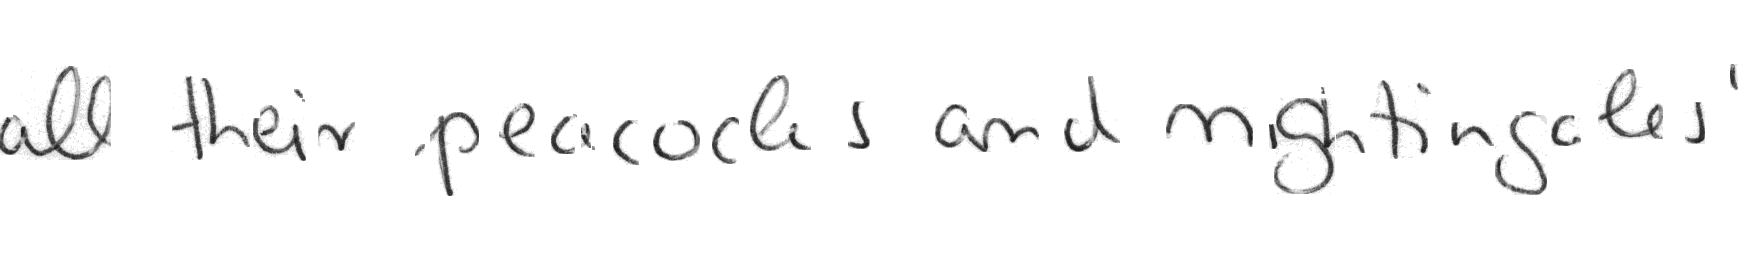 all their peacocks and nightingales'